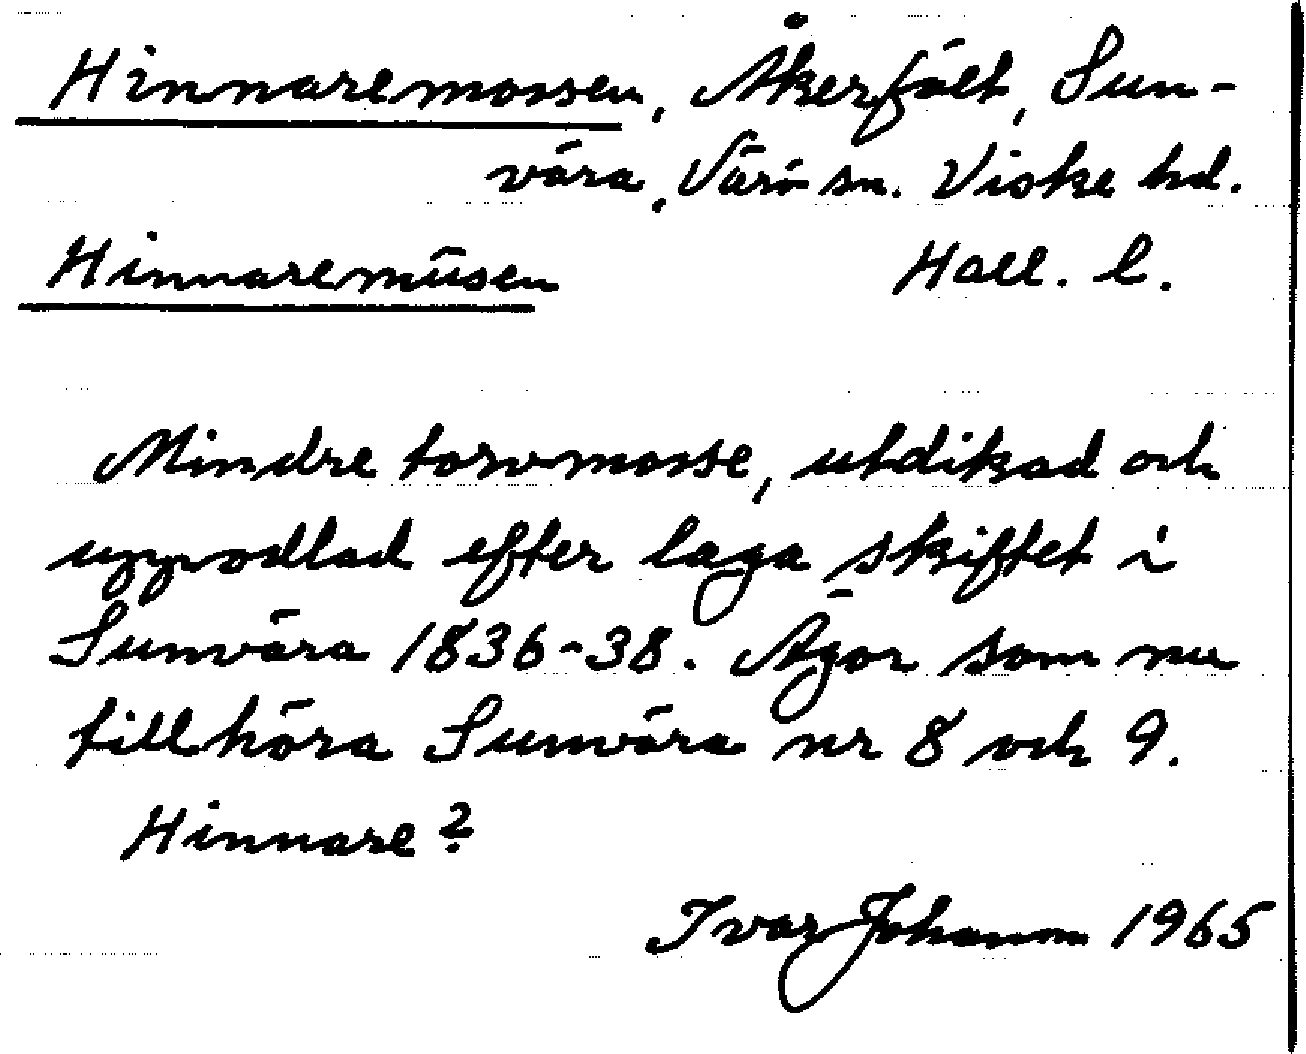 Hinnaremossen, Åkerfält, Sun-
vära, Värö sn. Viske hd.
Hinnaremūsen Hall. l.
Mindre torvmosse, utdikad och
uppodlad efter laga skiftet i
Sunvära 1836-38. Ägor som nu
tillhöra Sunvära nr 8 och 9.
Hinnare?
Ivar Johanson 1965